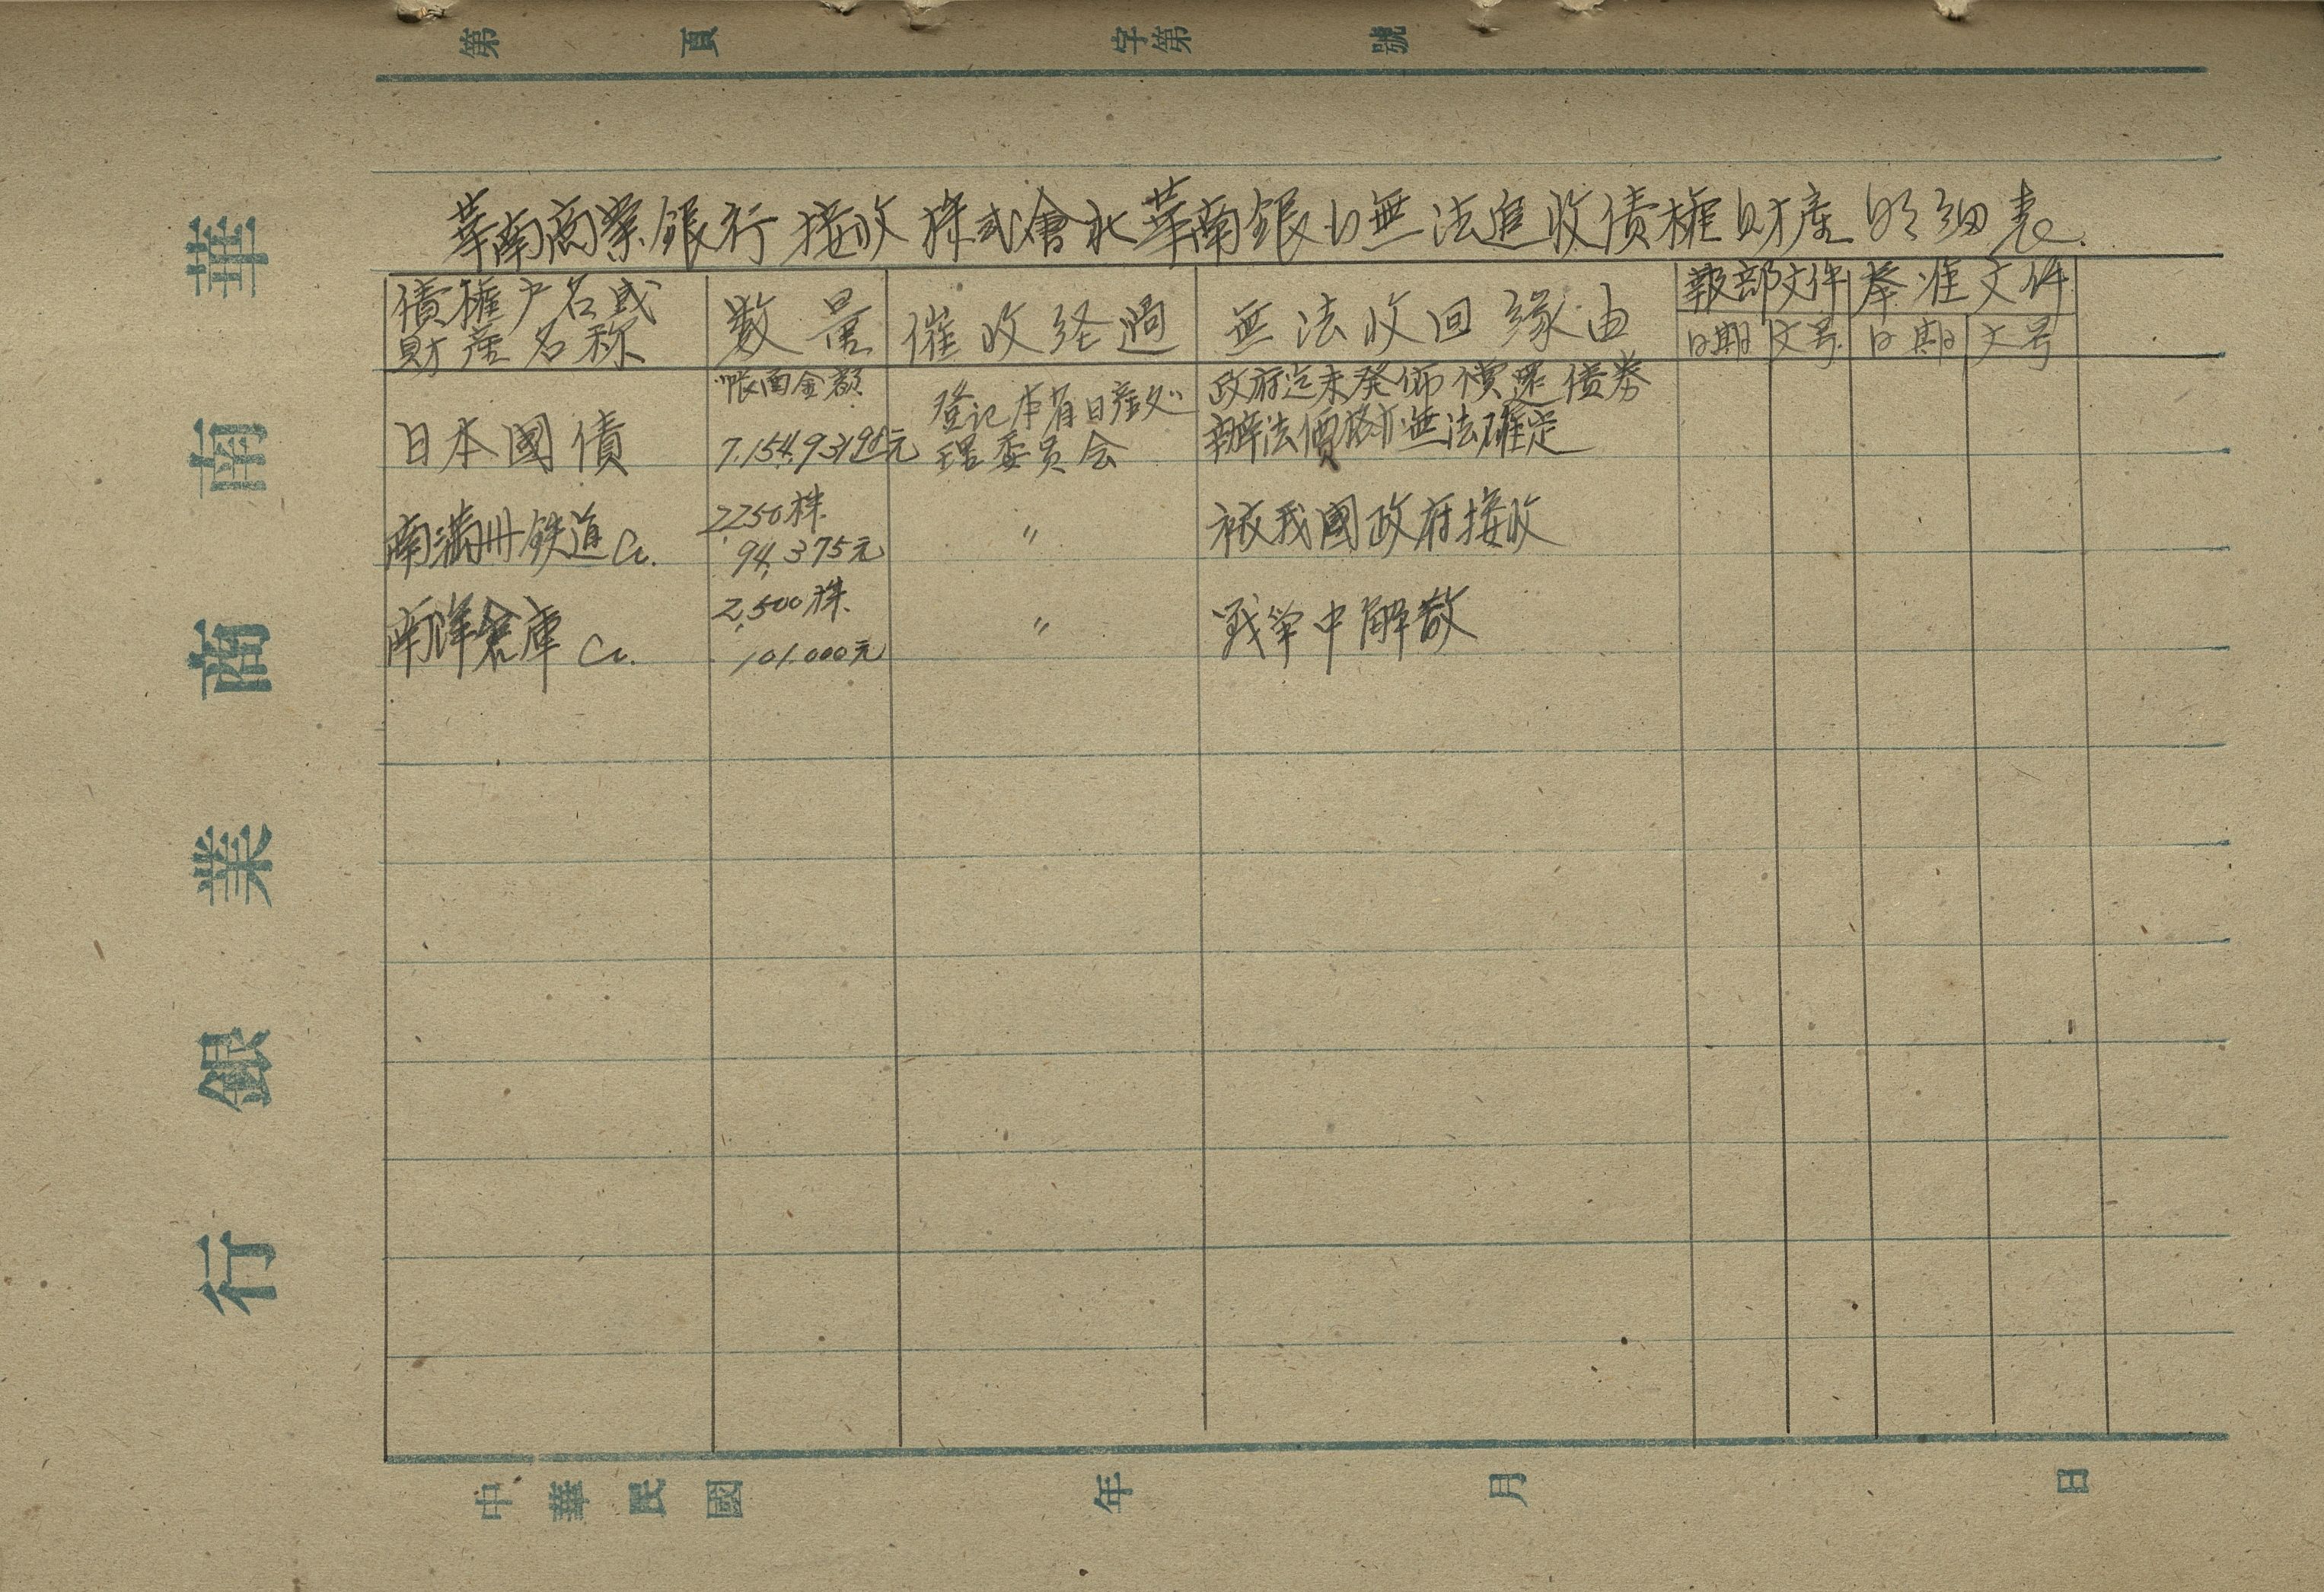 第 頁 字第 號
華南商業銀行
華南商業銀行接收株式會社華南銀行無法追收債權財產明細表
債權户名或財產名称 数量 催收経過 無法收回緣由 報部文件 奉准文件
日期 文号 日期 文号
帳面金額
日本國債 元 登记本省日產処理委员会 政府迄未発佈償還債券辦法價格亦無法確定
南満州鉄道Co. 2,250株 94,375元 〃 被我國政府接收
南洋倉庫Co. 2,500株 101,000元 〃 戦争中解散
中華民國 年 月 日